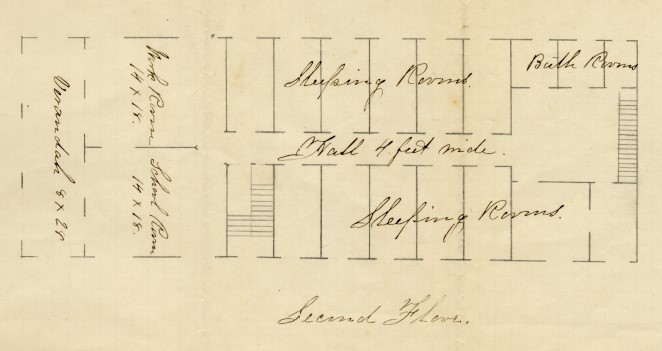 Verandah 8 x 28.
Work Room
14 x 18.
School Room
14 x 18.
Sleeping Rooms.
Bath Rooms
Hall 4 feet wide.
Sleeping Rooms.
Second Floor.